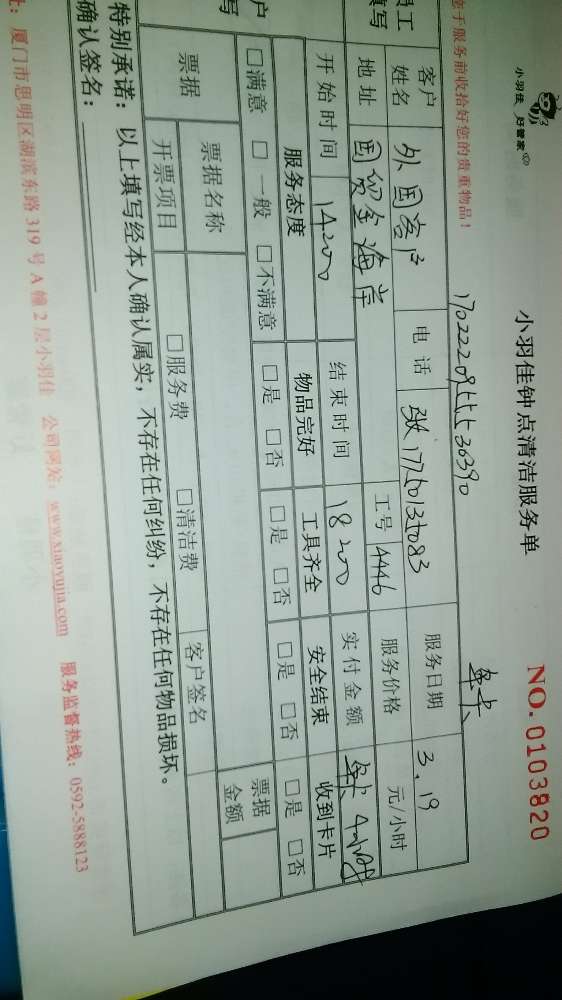 小羽佳 好管家
小羽佳钟点清洁服务单
NO.0103820
您于服务前收拾好您的贵重物品！
年卡
客户姓名 外国客户 电话 17750135083 服务日期 3.19
地址 国贸金海岸 工号 4446 服务价格 元/小时
开始时间 14:00 结束时间 18:00 实付金额 年卡
服务态度 物品完好 工具齐全 安全结束 收到卡片
□满意 □一般 □不满意 □是 □否 □是 □否 □是 □否 □是 □否
票据 票据名称 □服务费 □清洁费 客户签名 票据金额
开票项目
特别承诺：以上填写经本人确认属实，不存在任何纠纷，不存在任何物品损坏。
确认签名：
厦门市思明区湖滨东路319号A幢2层小羽佳 公司网站：www.xiaoyujia.com 服务监督热线：0592-5888123